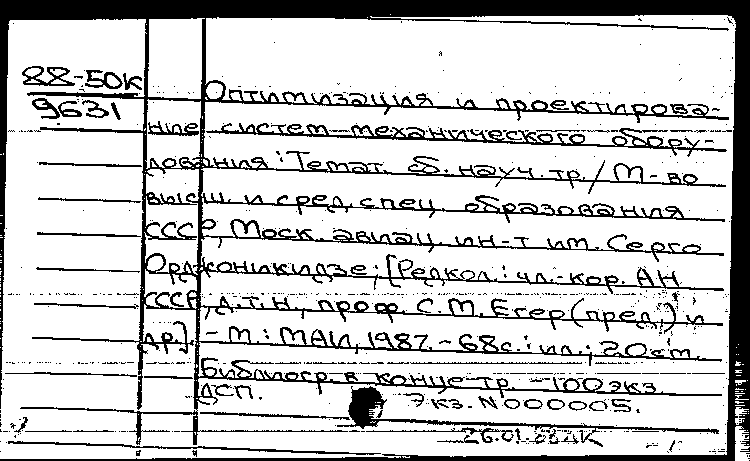 22-50К
9631
Оптимизация и проектирова-
ние систем механического обору-
дования: Темат. сб. науч. тр./М-во
высш. и сред. спец. образования
СССР, Моск. авиац. ин-т им. Серго
Орджоникидзе; [Редкол.: чл.-кор. АН
СССР, д.т.н., проф. С.М. Егер (пред.) и
др.]. - М.: МАИ, 1987. - 68с.: ил.; 20см.
Библиогр. в конце тр. - 100 экз.
ДСП. Экз. N 000005.
26.01.88